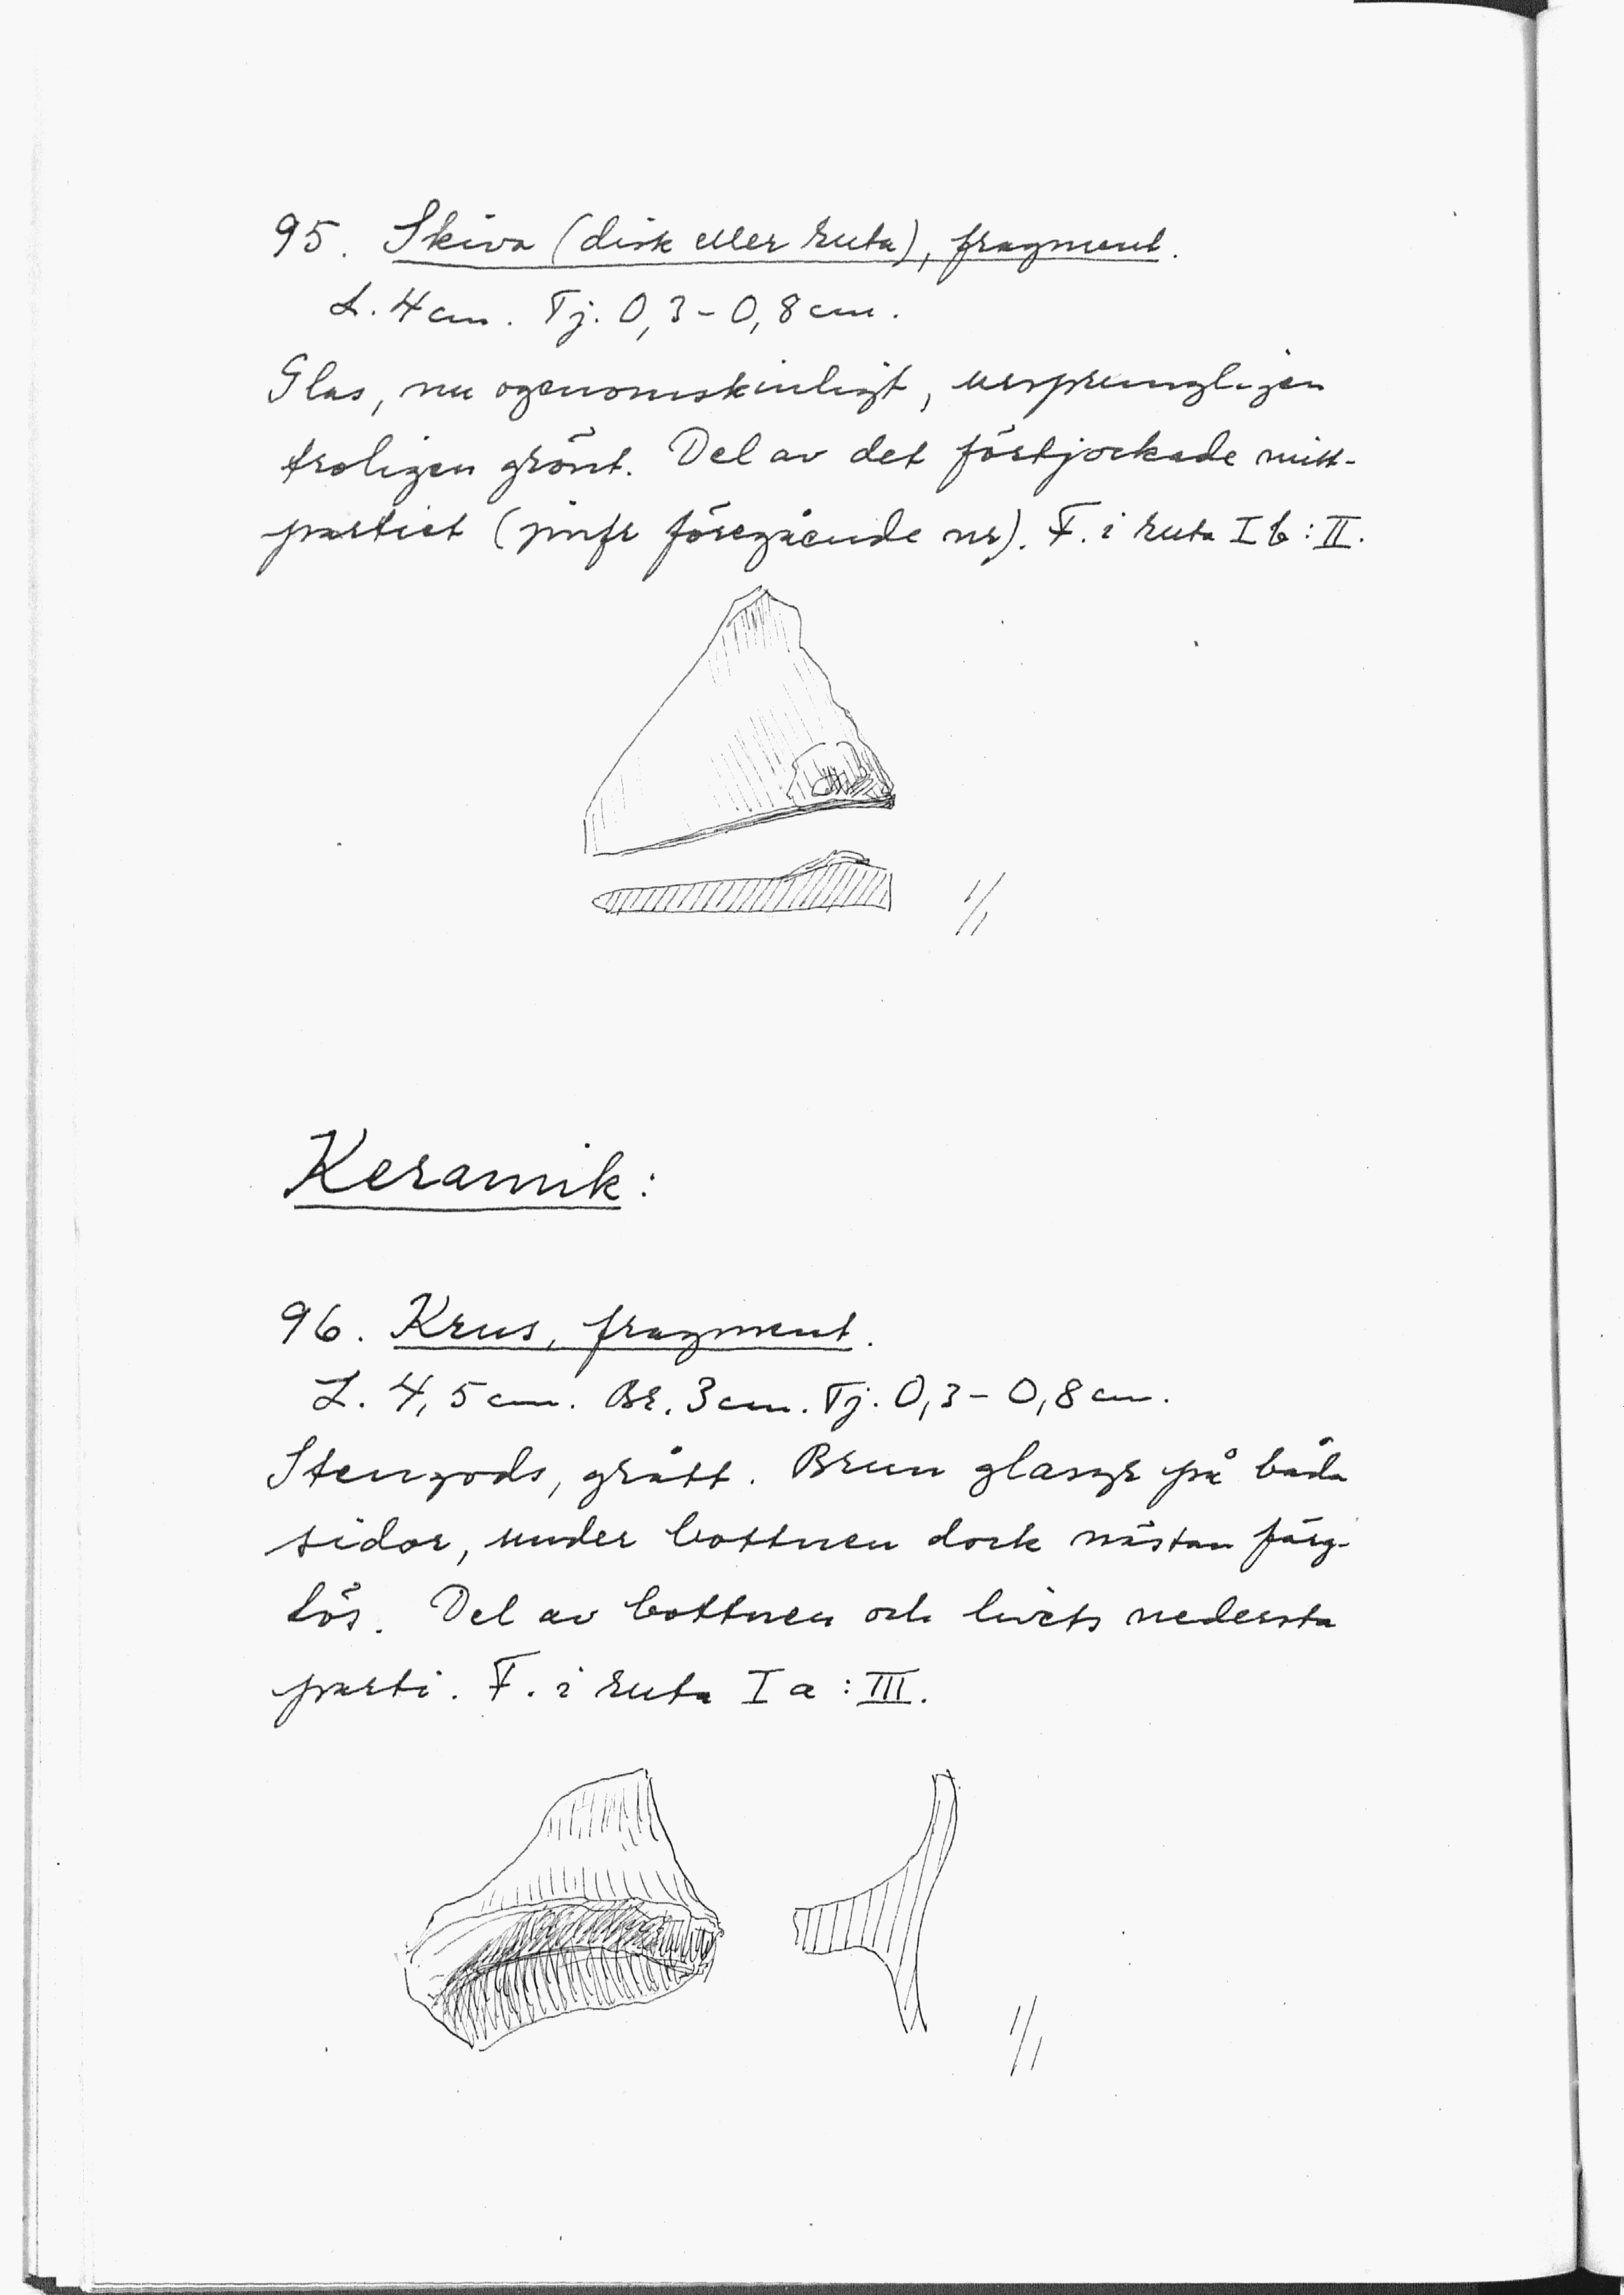 95. Skiva (disk eller ruta), fragment.
L. 4 cm. Tj. 0,3 - 0,8 cm.
Glas, nu ogenomskinligt, ursprungligen
troligen grönt. Del av det förtjockade mitt-
partiet (jmfr föregående nr). F. i ruta I b : II.
1/1
Keramik:
96. Krus, fragment.
L. 4,5 cm. Br. 3 cm. Tj. 0,3 - 0,8 cm.
Stengods, grått. Brun glasyr på båda
sidor, under bottnen dock nästan färg-
lös. Del av bottnen och livets nedersta
parti. F. i ruta I a : III.
1/1